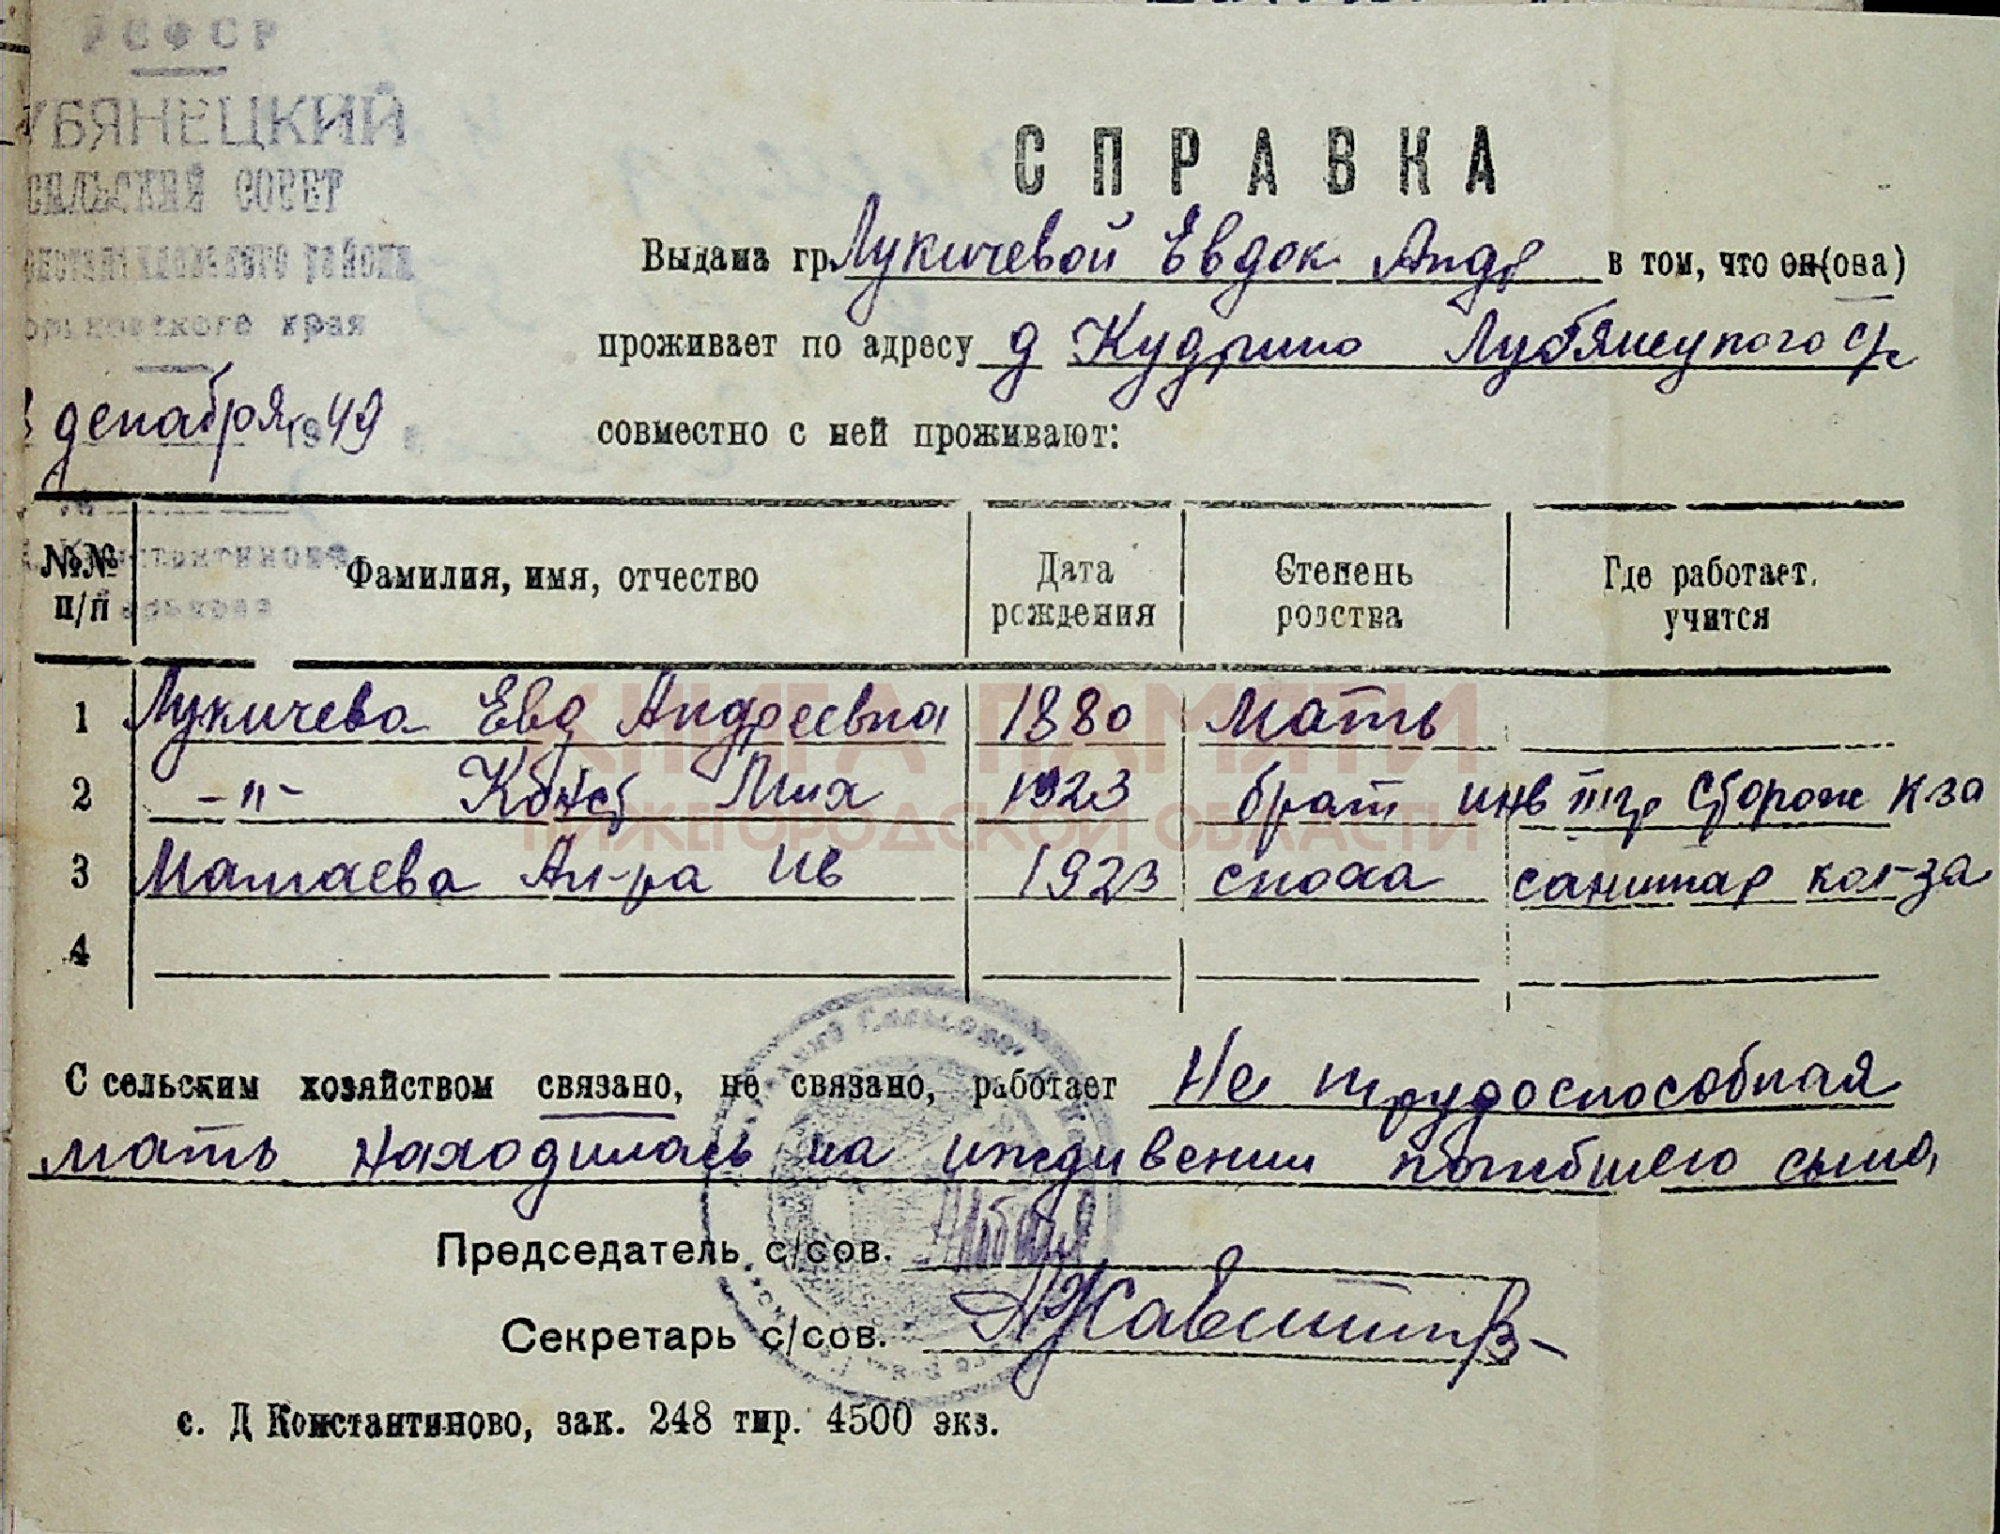 РСФСР
УБЯНЕЦКИЙ
СЕЛЬСКИЙ СОВЕТ
района
края
декабря 1949 г.
СПРАВКА
Выдана гр. Лукичевой Евдок Андр в том, что он (она)
проживает по адресу д Кудрино Лубянецкого с/с
совместно с ней проживают:
№№ п/п Фамилия, имя, отчество Дата рождения Степень родства Где работает, учится
1 Лукичева Евд Андреевна 1880 мать
2 -"- Конст Мих 1923 брат инв сторож к-за
3 Мамаева Ал-ра Ив 1923 сноха санитар кол-за
4
КНИГА ПАМЯТИ
НИЖЕГОРОДСКОЙ ОБЛАСТИ
С сельским хозяйством связано, не связано, работает Не трудоспособная
мать находилась на иждивении погибшего сына
Председатель с/сов.
Секретарь с/сов.
с. Д Константиново, зак. 248 тир. 4500 экз.